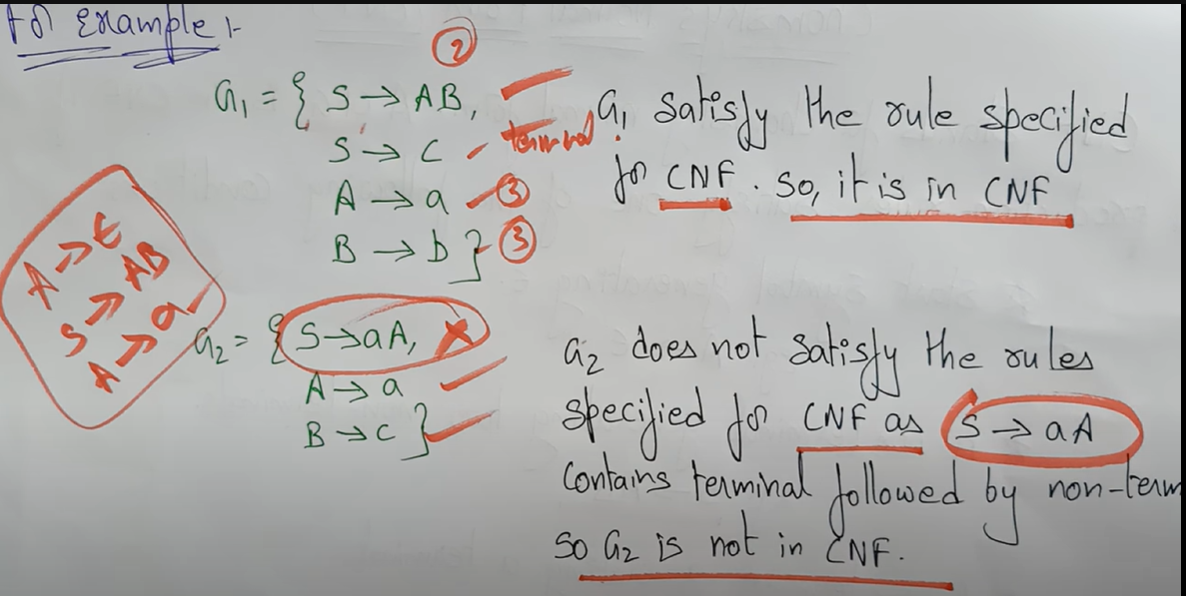 for Example :-
②
G₁ = { S → AB,
S → c terminal
A → a ③
B → b } ③
G₁ satisfy the rule specified
for CNF. So, it is in CNF
A → ε
S → AB
A → a
G₂ = { S → aA,
A → a
B → c }
G₂ does not satisfy the rules
specified for CNF as S → aA
Contains terminal followed by non-term
so G₂ is not in CNF.